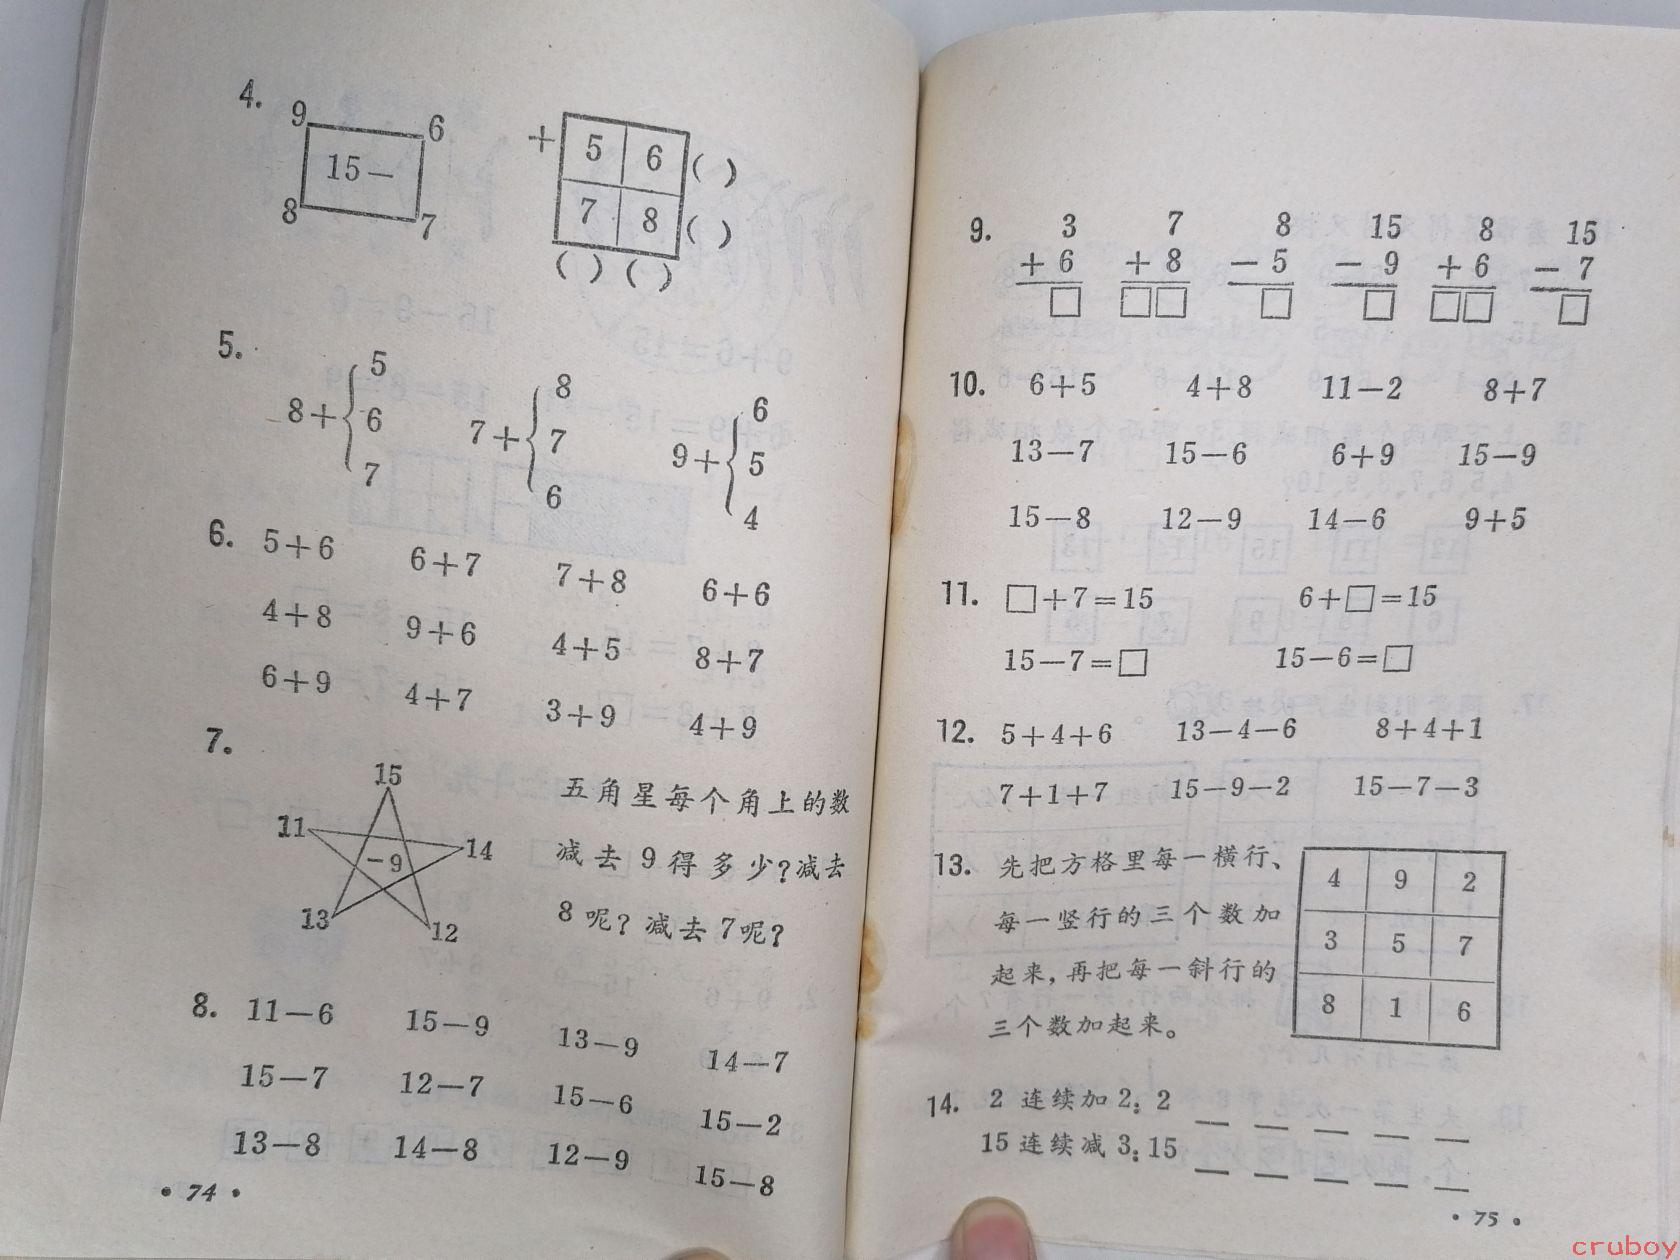 4.
9 6
15－
8 7
＋ 5 6 ( )
7 8 ( )
( ) ( )
5.
8＋{ 5 6 7
7＋{ 8 7 6
9＋{ 6 5 4
6. 5＋6 6＋7 7＋8 6＋6
4＋8 9＋6 4＋5 8＋7
6＋9 4＋7 3＋9 4＋9
7.
15
11 14
－9
13 12
五角星每个角上的数
减去 9 得多少?减去
8 呢? 减去 7 呢?
8. 11－6 15－9 13－9 14－7
15－7 12－7 15－6 15－2
13－8 14－8 12－9 15－8
• 74 •
9. 3 7 8 15 8 15
＋6 ＋8 －5 －9 ＋6 －7
□ □□ □ □ □□ □
10. 6＋5 4＋8 11－2 8＋7
13－7 15－6 6＋9 15－9
15－8 12－9 14－6 9＋5
11. □＋7＝15 6＋□＝15
15－7＝□ 15－6＝□
12. 5＋4＋6 13－4－6 8＋4＋1
7＋1＋7 15－9－2 15－7－3
13. 先把方格里每一横行、
每一竖行的三个数加
起来,再把每一斜行的
三个数加起来。
4 9 2
3 5 7
8 1 6
14. 2 连续加 2: 2 _ _ _ _ _
15 连续减 3: 15 _ _ _ _ _
• 75 •
cruboy